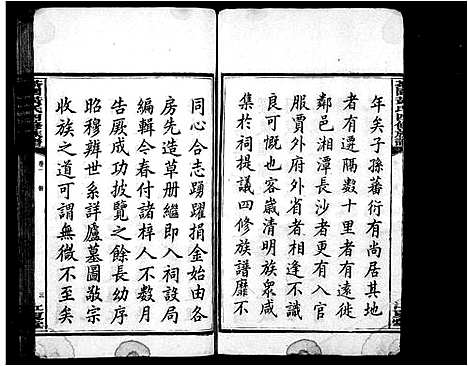 年矣子孫蕃衍有尚居其地
者有遷隔數十里者有遠徙
鄰邑湘潭長沙者更有入官
服賈外府外省者相逢不識
良可慨也客歲清明族衆咸
集於祠提議四修族譜靡不
同心合志踴躍捐金始由各
房先造草册繼即入祠設局
編輯今春付諸梓人不數月
告厥成功披覽之餘長幼序
昭穆辨世系詳廬墓圖敬宗
收族之道可謂無微不至矣